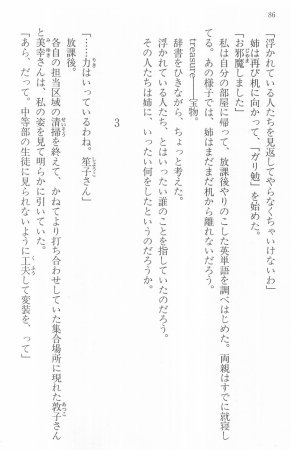 86
「浮かれている人たちを見返してやらなくちゃいけないわ」
姉は再び机に向かって、「ガリ勉」を始めた。
「お邪魔しました」
私は自分の部屋に帰って、放課後やりのこした英単語を調べはじめた。両親はすでに就寝し
てる。あの様子では、姉はまだまだ机から離れないだろう。
treasure――宝物。
辞書をひきながら、ちょっと考えた。
浮かれている人たち、とはいったい誰のことを指していたのだろう。
その人たちは姉に、いったい何をしたというのだろうか。
3
「……力はいっているわね。笙子さん」
放課後。
各自の担当区域の清掃を終えて、かねてより打ち合わせしていた集合場所に現れた敦子さん
と美幸さんは、私の姿を見て明らかに引いていた。
「あら、だって、中等部の生徒に見られないように工夫して変装を、って」